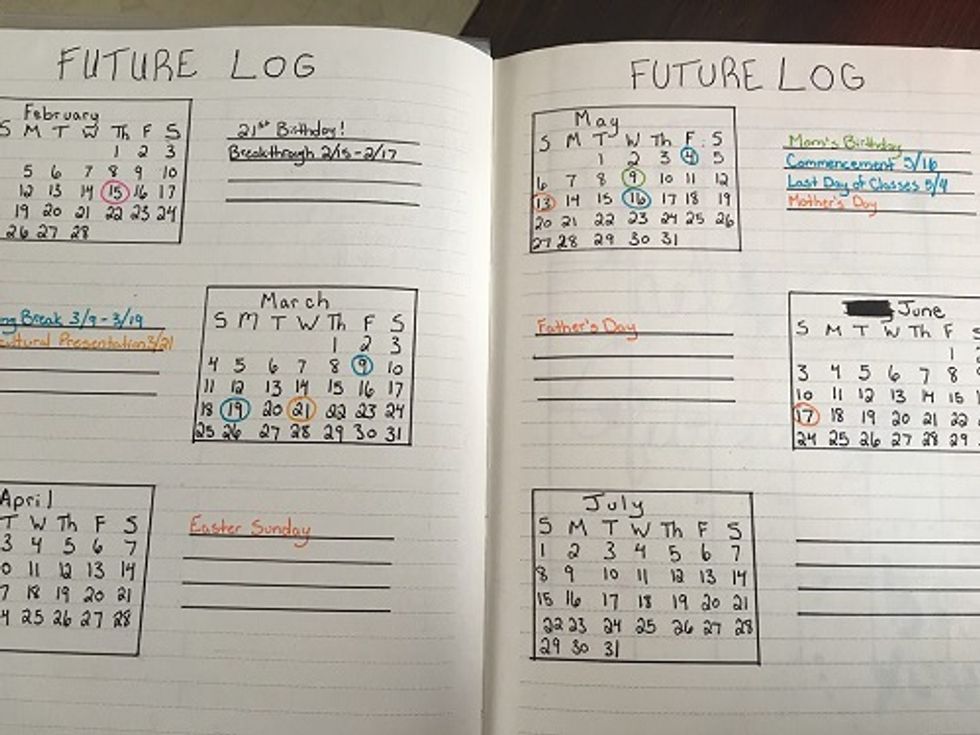 FUTURE LOG
February
S M T W Th F S
1 2 3
5 6 7 8 9 10
12 13 14 15 16 17
19 20 21 22 23 24
26 27 28
21st Birthday!
Breakthrough 2/15-2/17
ng Break 3/9-3/19
cultural Presentation 3/21
March
S M T W Th F S
1 2 3
4 5 6 7 8 9 10
11 12 13 14 15 16 17
18 19 20 21 22 23 24
25 26 27 28 29 30 31
April
T W Th F S
3 4 5 6 7
0 11 12 13 14
7 18 19 20 21
4 25 26 27 28
Easter Sunday
FUTURE LOG
May
S M T W Th F S
1 2 3 4 5
6 7 8 9 10 11 12
13 14 15 16 17 18 19
20 21 22 23 24 25 26
27 28 29 30 31
Mom's Birthday
Commencement 5/16
Last Day of Classes 5/4
Mother's Day
Father's Day
June
S M T W Th F S
1 2
3 4 5 6 7 8 9
10 11 12 13 14 15
17 18 19 20 21 22
24 25 26 27 28 29
July
S M T W Th F S
1 2 3 4 5 6 7
8 9 10 11 12 13 14
15 16 17 18 19 20 21
22 23 24 25 26 27 28
29 30 31